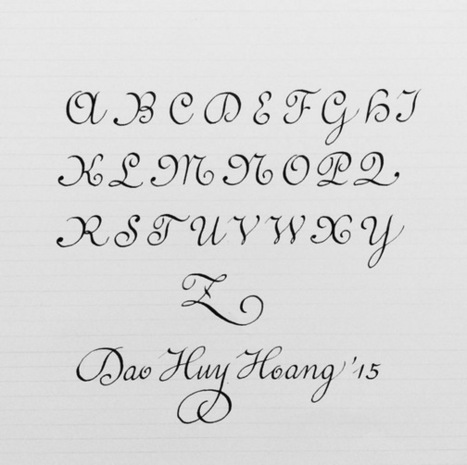 A B C D E F G H I
K L M N O P Q
R S T U V W X Y
Z
Dao Huy Hoang '15